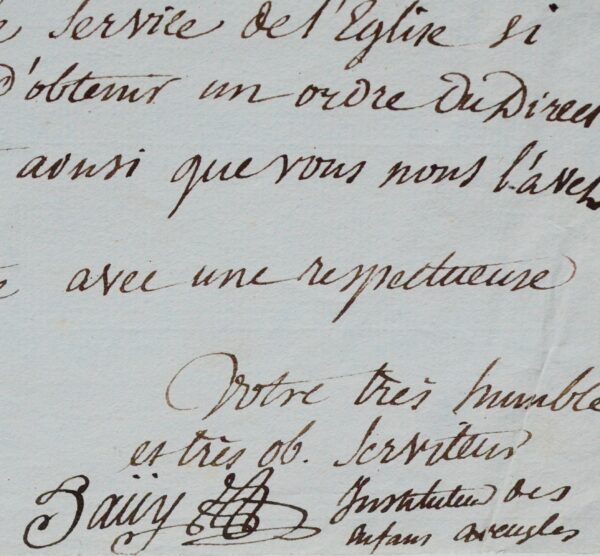 service de l'Eglise si
D'obtenir un ordre du Direct
ainsi que vous nous l'avez
avec une respectueuse
Votre très humble
et très ob. Serviteur
Haüy Instituteur des
enfans aveugles